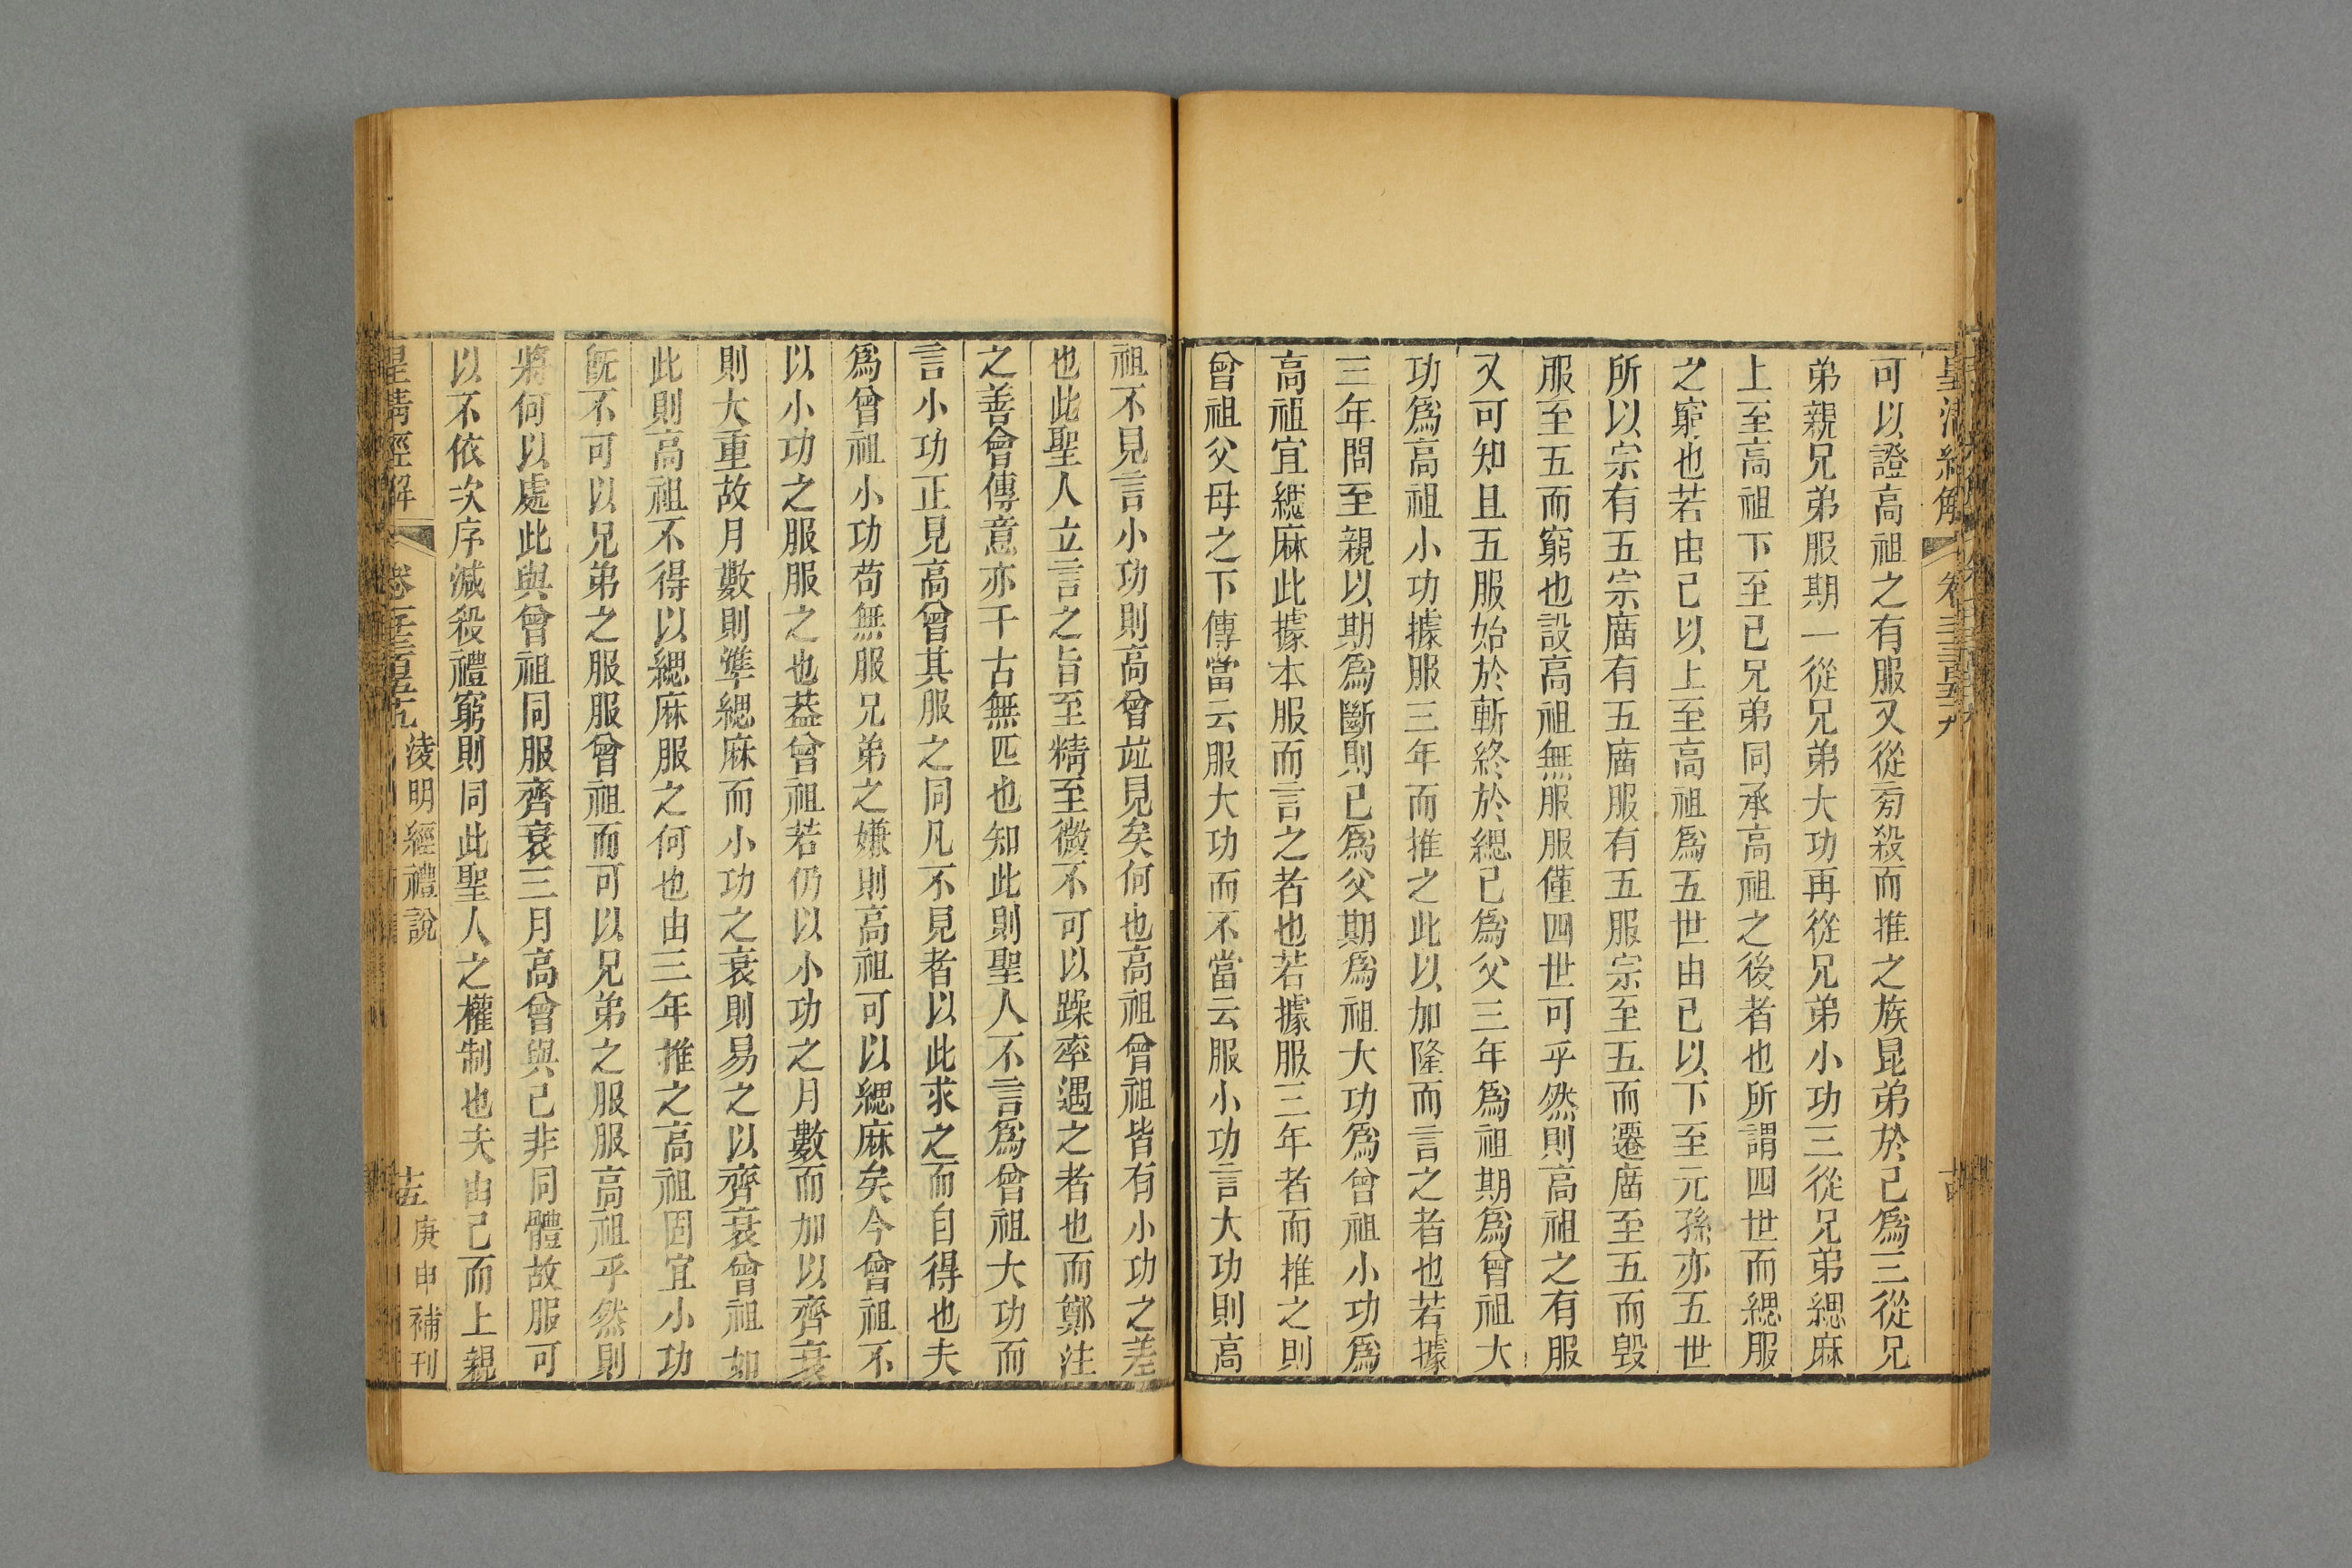 可以證高祖之有服又從旁殺而推之族昆弟於己爲三從兄
弟親兄弟服期一從兄弟大功再從兄弟小功三從兄弟緦麻
上至高祖下至己兄弟同承高祖之後者也所謂四世而緦服
之窮也若由己以上至高祖爲五世由己以下至元孫亦五世
所以宗有五宗廟有五廟服有五服宗至五而遷廟至五而毀
服至五而窮也設高祖無服服僅四世可乎然則高祖之有服
又可知且五服始於斬終於緦己爲父三年爲祖期爲曾祖大
功爲高祖小功據服三年而推之此以加隆而言之者也若據
三年問至親以期爲斷則己爲父期爲祖大功爲曾祖小功爲
高祖宜緦麻此據本服而言之者也若據服三年者而推之則
曾祖父母之下傳當云服大功而不當云服小功言大功則高
祖不見言小功則高曾竝見矣何也高祖曾祖皆有小功之差
也此聖人立言之旨至精至微不可以躁率遇之者也而鄭注
之善會傳意亦千古無匹也知此則聖人不言爲曾祖大功而
言小功正見高曾其服之同凡不見者以此求之而自得也夫
爲曾祖小功苟無服兄弟之嫌則高祖可以緦麻矣今曾祖不
以小功之服服之也葢曾祖若仍以小功之月數而加以齊衰
則大重故月數則準緦麻而小功之衰則易之以齊衰曾祖如
此則高祖不得以緦麻服之何也由三年推之高祖固宜小功
旣不可以兄弟之服服曾祖而可以兄弟之服服高祖乎然則
將何以處此與曾祖同服齊衰三月高曾與己非同體故服可
以不依次序減殺禮窮則同此聖人之權制也夫由己而上親
皇清經解
淩明經禮說
十五
庚申補刊